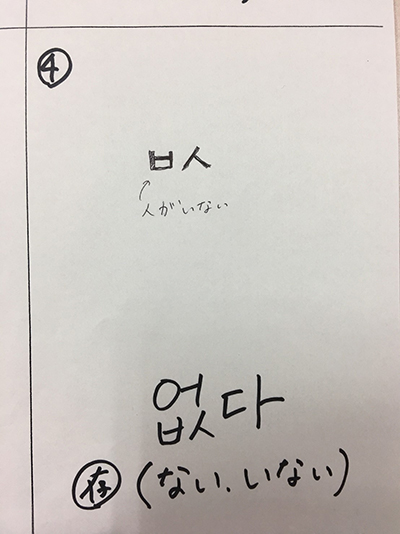 ④
ㅂㅅ
↑
人がいない
없다
存 (ない、いない)